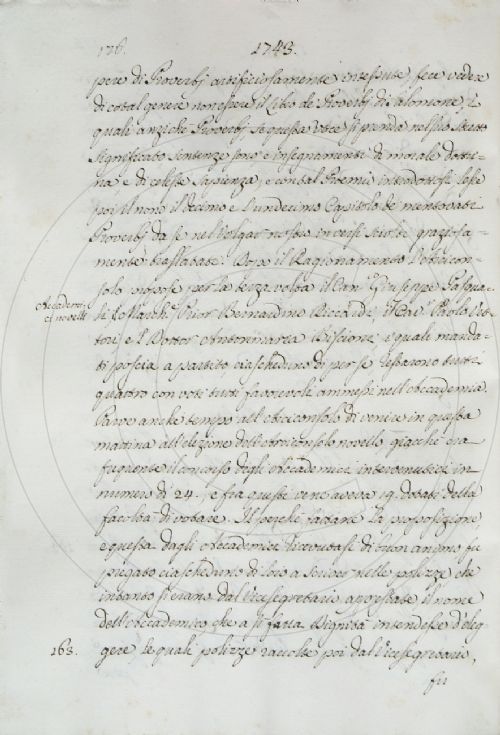 176. 1743.
pere di Proverbj artificiosamente intessute, fece vedere
di cotal genere non essere il Libro de Proverbj di Salomone, i
quali anzi che Proverbj se questa voce si prenda nel suo stretto
significato sentenze sono e insegnamenti di morale dottri-
na e di celeste Sapienza; e con tal Proemio introdottosi lesse
poi il nono il decimo e l'undecimo Capitolo de' mentovati
Proverbj da se nel volgar nostro in versi sciolti graziosa-
mente traslatati. Dopo il Ragionamento l'Arcicon-
Accademi-
ci novelli
solo propose per la terza volta il Can.co Giuseppe
li, il March.e Prior Bernardino Riccardi, il Cav.r Paolo Vet-
tori e l Dottor Antommaria Biscioni, i quali manda-
ti poscia a partito ciascheduno di per se restarono tutti
quattro con voti tutti favorevoli ammessi nell'Accademia.
Parve anche tempo all'Arciconsolo di venire in questa
mattina all'elezione dell'Arciconsolo novello giacchè era
frequente il concorso degli Accademici intervenutivi in
numero di 24., e fra questi ve ne aveva 19. dotati della
facoltà di votare. Il perchè fattane la proposizione,
e questa dagli Accademici ricevutasi di buon animo fu
pregato ciascheduno di loro a scriver nelle polizze che
intanto si erano dal Vicesegretario apprestate il nome
dell'Accademico che a sì fatta Dignità intendesse d'eleg-
163. gere, le quali polizze raccolte poi dal Vicesegretario,
fu